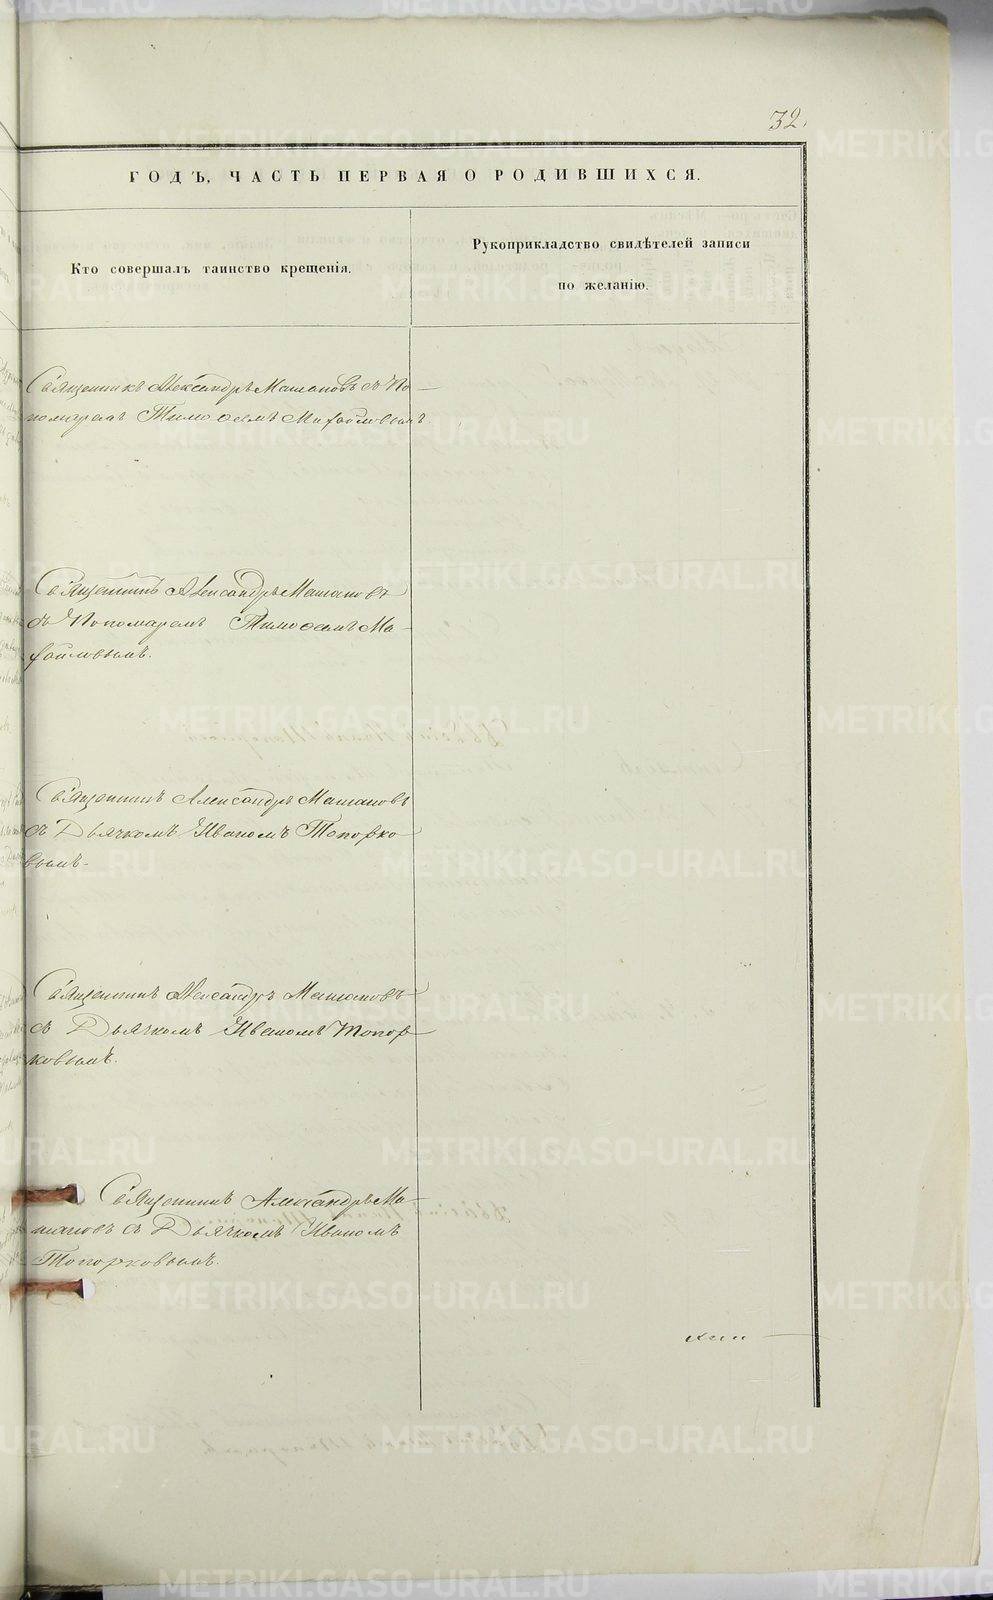 32.
ГОДЪ, ЧАСТЬ ПЕРВАЯ О РОДИВШИХСЯ.
Кто совершалъ таинство крещенія.
Рукоприкладство свидѣтелей записи
по желанію.
Священникъ Александръ Машановъ съ По-
номаремъ Тимоѳеемъ Михайловымъ
Священникъ Александръ Машановъ
съ Пономаремъ Тимоѳеемъ Ми-
хайловымъ.
Священникъ Александръ Машановъ
съ Дьячкомъ Иваномъ Топорко
вымъ.
Священникъ Александръ Машановъ
съ Дьячкомъ Иваномъ Топор
ковымъ.
Священникъ Александръ Ма-
шановъ съ Дьячкомъ Иваномъ
Топорковымъ.
METRIKI.GASO-URAL.RU